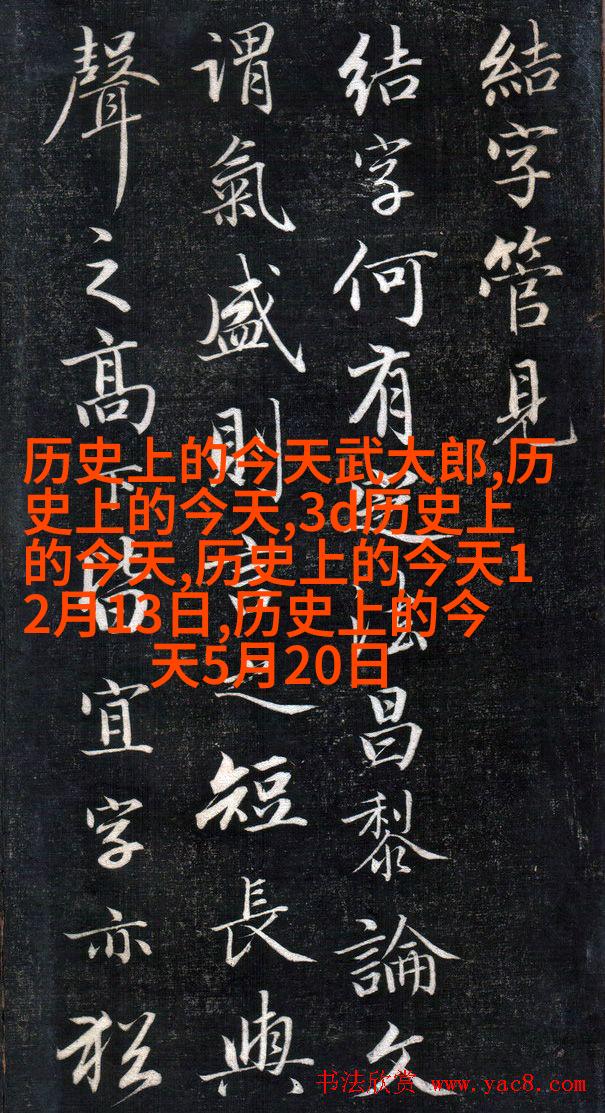 結字管見
結字何有法昌黎論文
謂氣盛則言之短長與
聲之高下皆宜字亦猶
历史上的今天武大郎,历
史上的今天,3d历史上
的今天,历史上的今天1
2月13日,历史上的今
天5月20日
书法欣赏 www.yac8.com